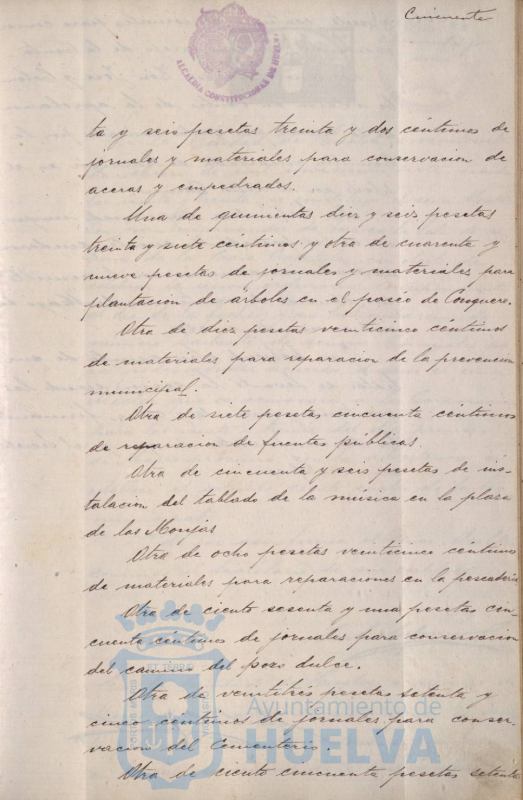 Cincuenta
ALCALDIA CONSTITUCIONAL DE HUELVA
ta y seis pesetas treinta y dos céntimos de
jornales y materiales para conservacion de
aceras y empedrados.
Una de quinientas diez y seis pesetas
treinta y siete céntimos y otra de cuarenta y
nueve pesetas de jornales y materiales para
plantación de árboles en el paseo de Conquero.
Otra de diez pesetas veinticinco céntimos
de materiales para reparacion de la prevencion
municipal.
Otra de siete pesetas cincuenta céntimos
de reparacion de fuentes públicas.
Otra de cincuenta y seis pesetas de ins-
talacion del tablado de la música en la plaza
de las Monjas
Otra de ocho pesetas veinticinco céntimos
de materiales para reparaciones en la pescaderia
Otra de ciento sesenta y una pesetas cin-
cuenta céntimos de jornales para conservacion
del camino del pozo dulce.
Otra de veintitrés pesetas setenta y
cinco céntimos de jornales para conser-
vacion del Cementerio.
Otra de ciento cincuenta pesetas setenta
Ayuntamiento de
HUELVA